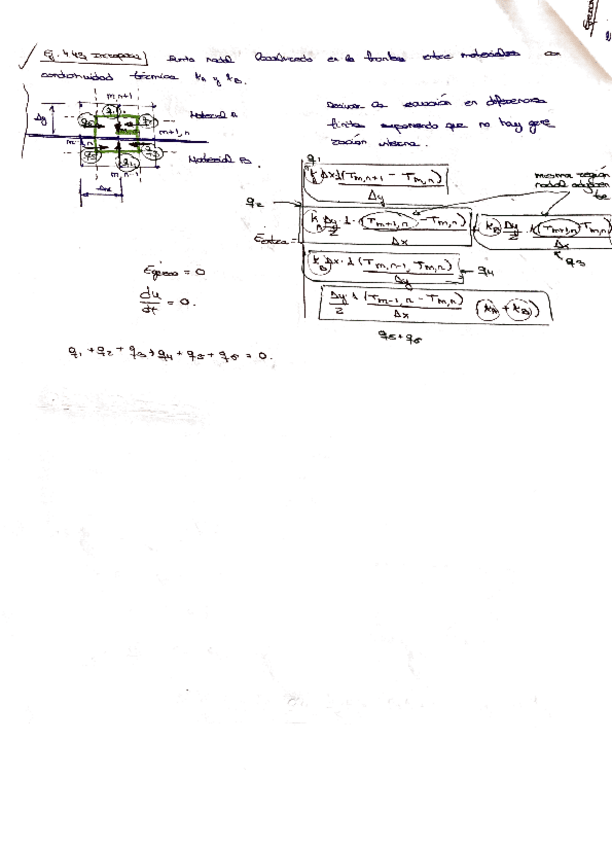 Ej. 4.43 Incropera) Punto nodal localizado en la frontera entre materiales con
conductividad térmica kA y kB.
Derivar la ecuación en diferencias
finitas suponiendo que no hay gene
ración interna.
m,n+1
Δy
Material A
m+1,n
Material B
m,n-1
Δx
q1
kA Δx·1 (Tm,n+1 - Tm,n)
Δy
misma región
nodal adyacen
te
q2
kA Δy/2 · 1 · (Tm+1,n - Tm,n)
Δx
kB Δy/2 · 1 (Tm+1,n - Tm,n)
Δx
q3
Eentra =
kB Δx·1 (Tm,n-1 - Tm,n)
Δy
q4
Δy/2 · 1 (Tm-1,n - Tm,n) (kA + kB)
Δx
q5+q6
Egen = 0
du/dt = 0.
q1 + q2 + q3 + q4 + q5 + q6 = 0.